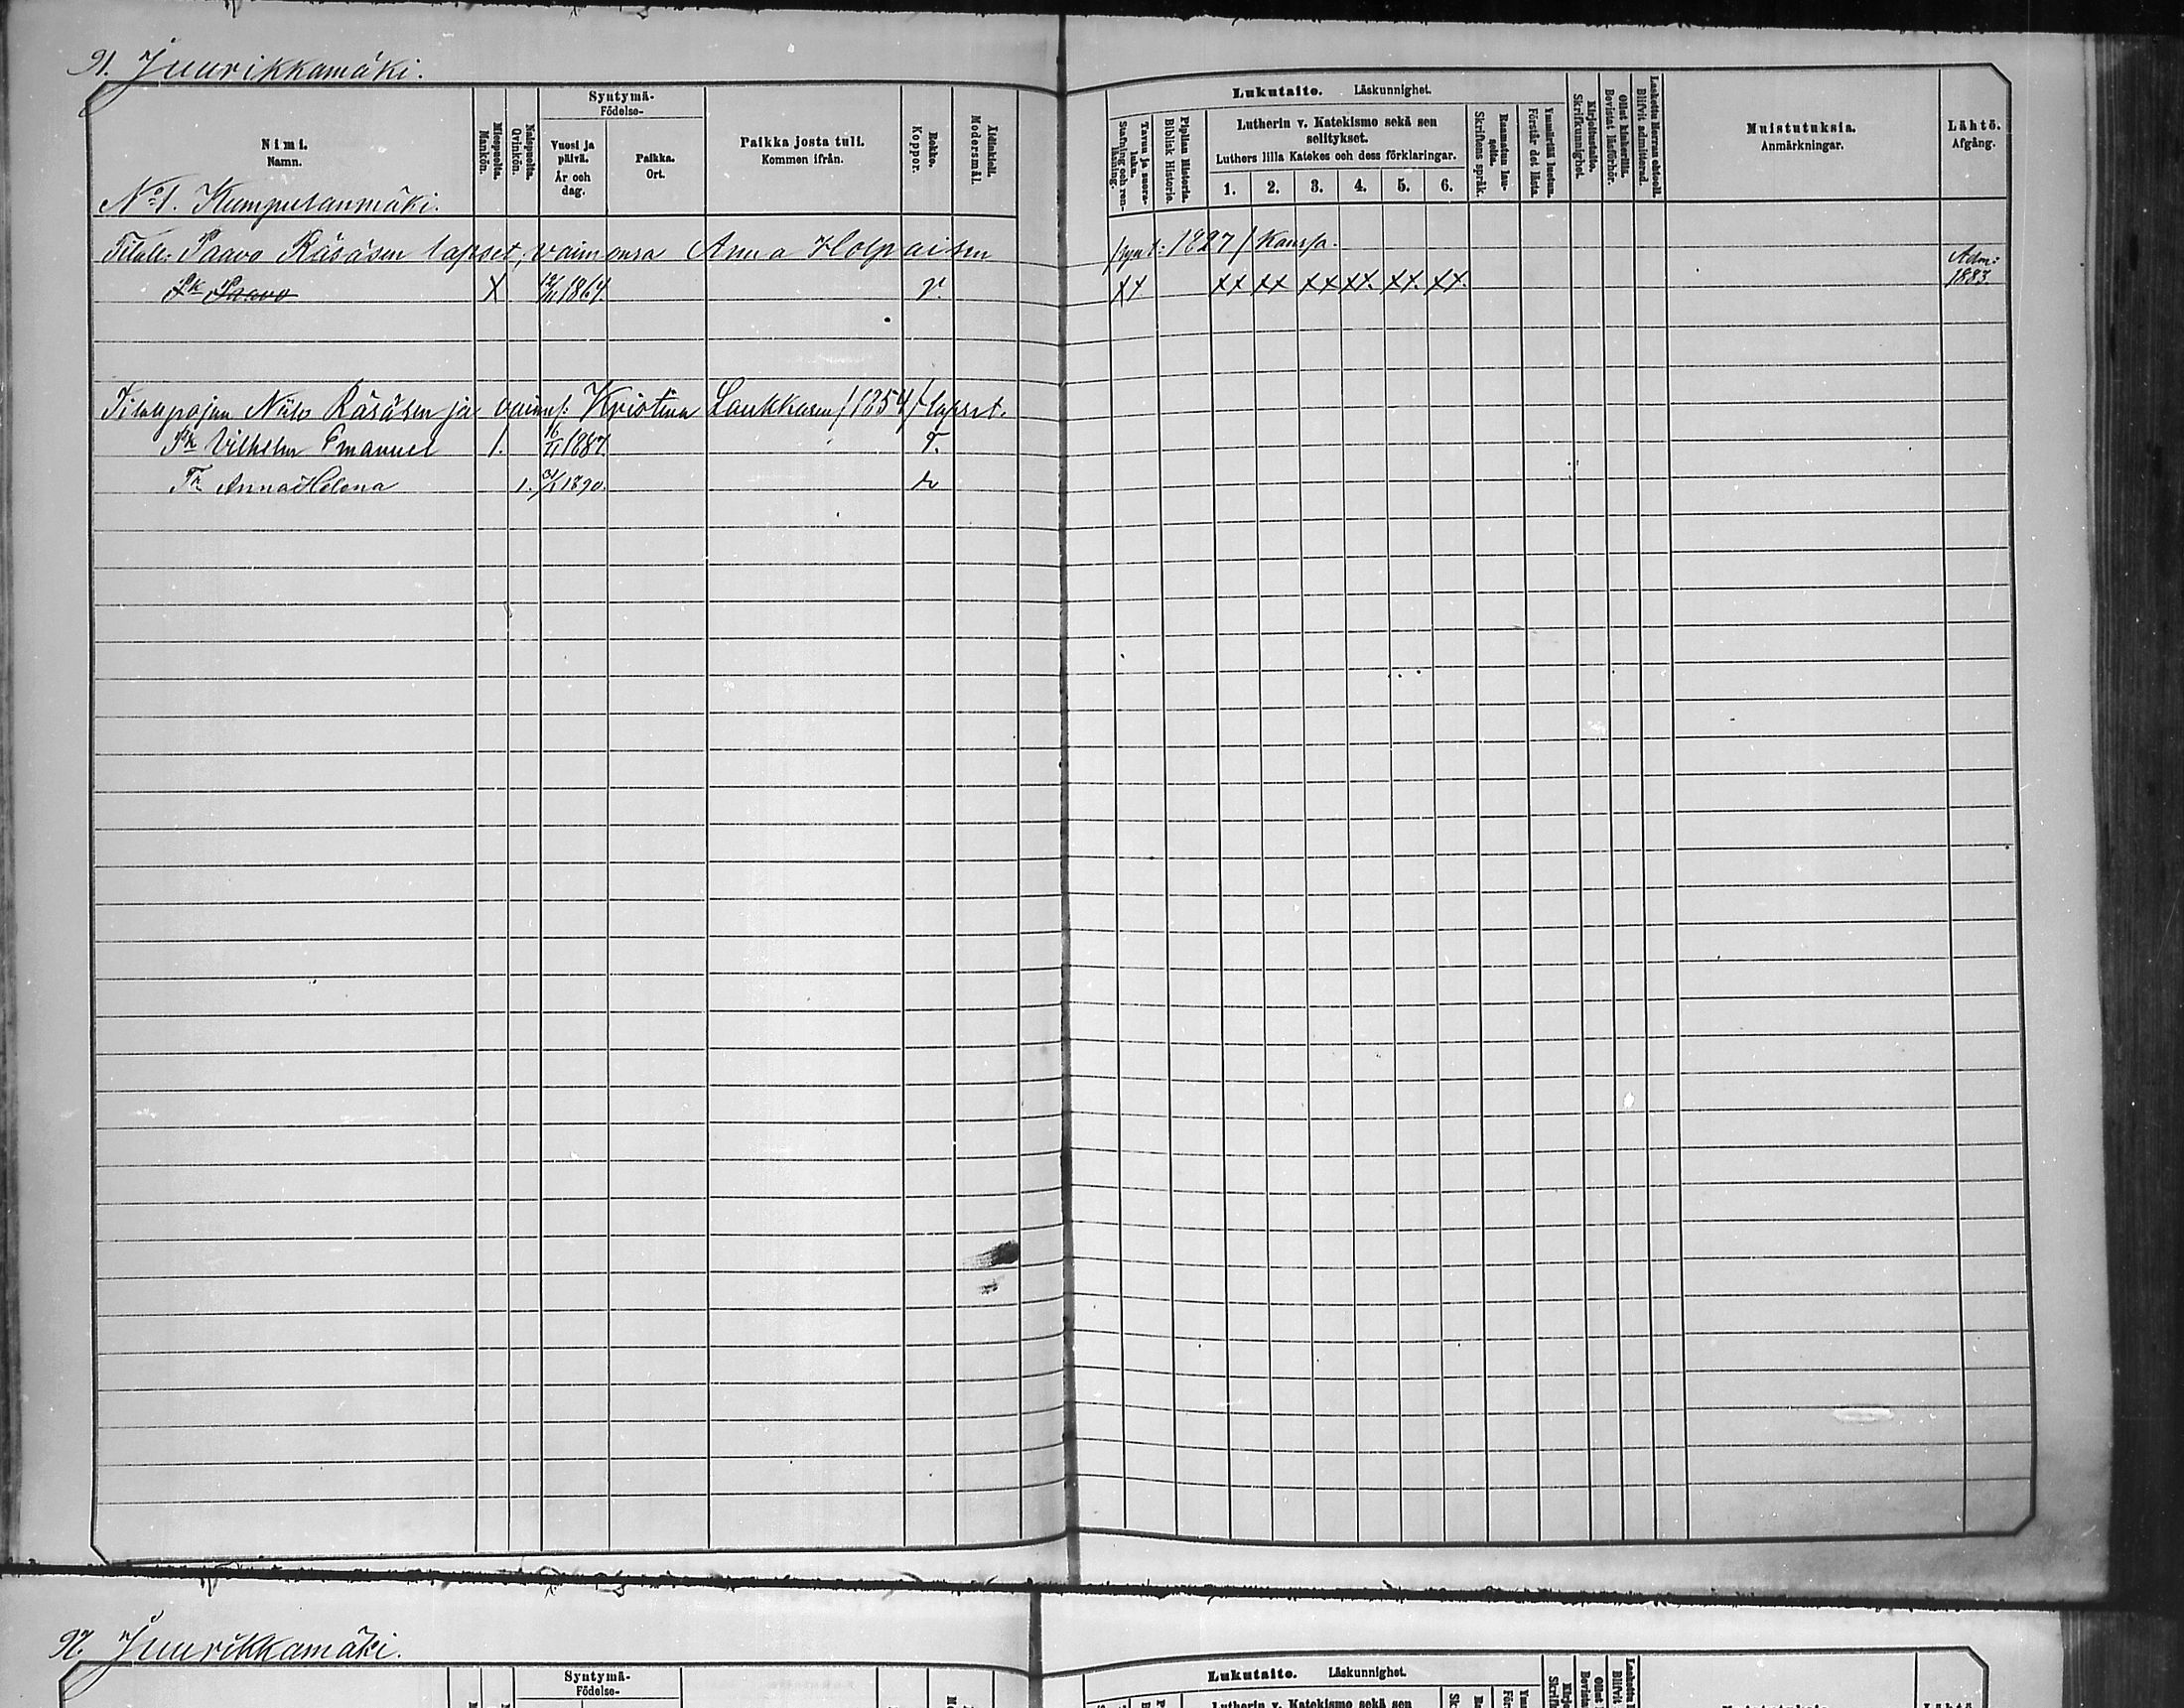 91. Juurikkamäki.
Nimi.
Namn.
Miespuolia.
Mankön.
Naispuolia.
Qvinkön.
Syntymä-
Födelse-
Vuosi ja
päivä.
År och
dag.
Paikka.
Ort.
Paikka josta tuli.
Kommen ifrån.
Rokko.
Koppor.
Äidinkieli.
Modersmål.
Lukutaito. Läskunnighet.
Tavuu ja suora-
luku.
Stafning och ren-
läsning.
Piplian Historia.
Biblisk Historie.
Lutherin v. Katekismo sekä sen
selitykset.
Luthers lilla Katekes och dess förklaringar.
1. 2. 3. 4. 5. 6.
Raamatun lau-
seita.
Skriftens språk.
Ymmärtää luetun.
Förstår det lästa.
Kirjoitustaito.
Skrifkunnighet.
Ollut kinkerillä.
Bevistat läsförhör.
Laskettu Herran ehtooll.
Blifvit admitterad.
Muistutuksia.
Anmärkningar.
Lähtö.
Afgång.
No 1. Kumpulanmäki.
Tilall. Paavo Räsäsen lapset, vaimonsa Anna Holopaisen /synt: 1827/ kanssa.
Pk Paavo X 1867. r. XX XX XX XX XX. XX. XX. Adm: 1883.
Tilallpojan Niilo Räsäsen ja vaims: Kristina Laukkasen /1854/ lapset.
Pk Vilhelm Emanuel 1. 16/11 1887. r.
Tr Anna Helena 1. 1890.
92. Juurikkamäki.
Syntymä-
Födelse-
Lukutaito. Läskunnighet.
Lutherin v. Katekismo sekä sen